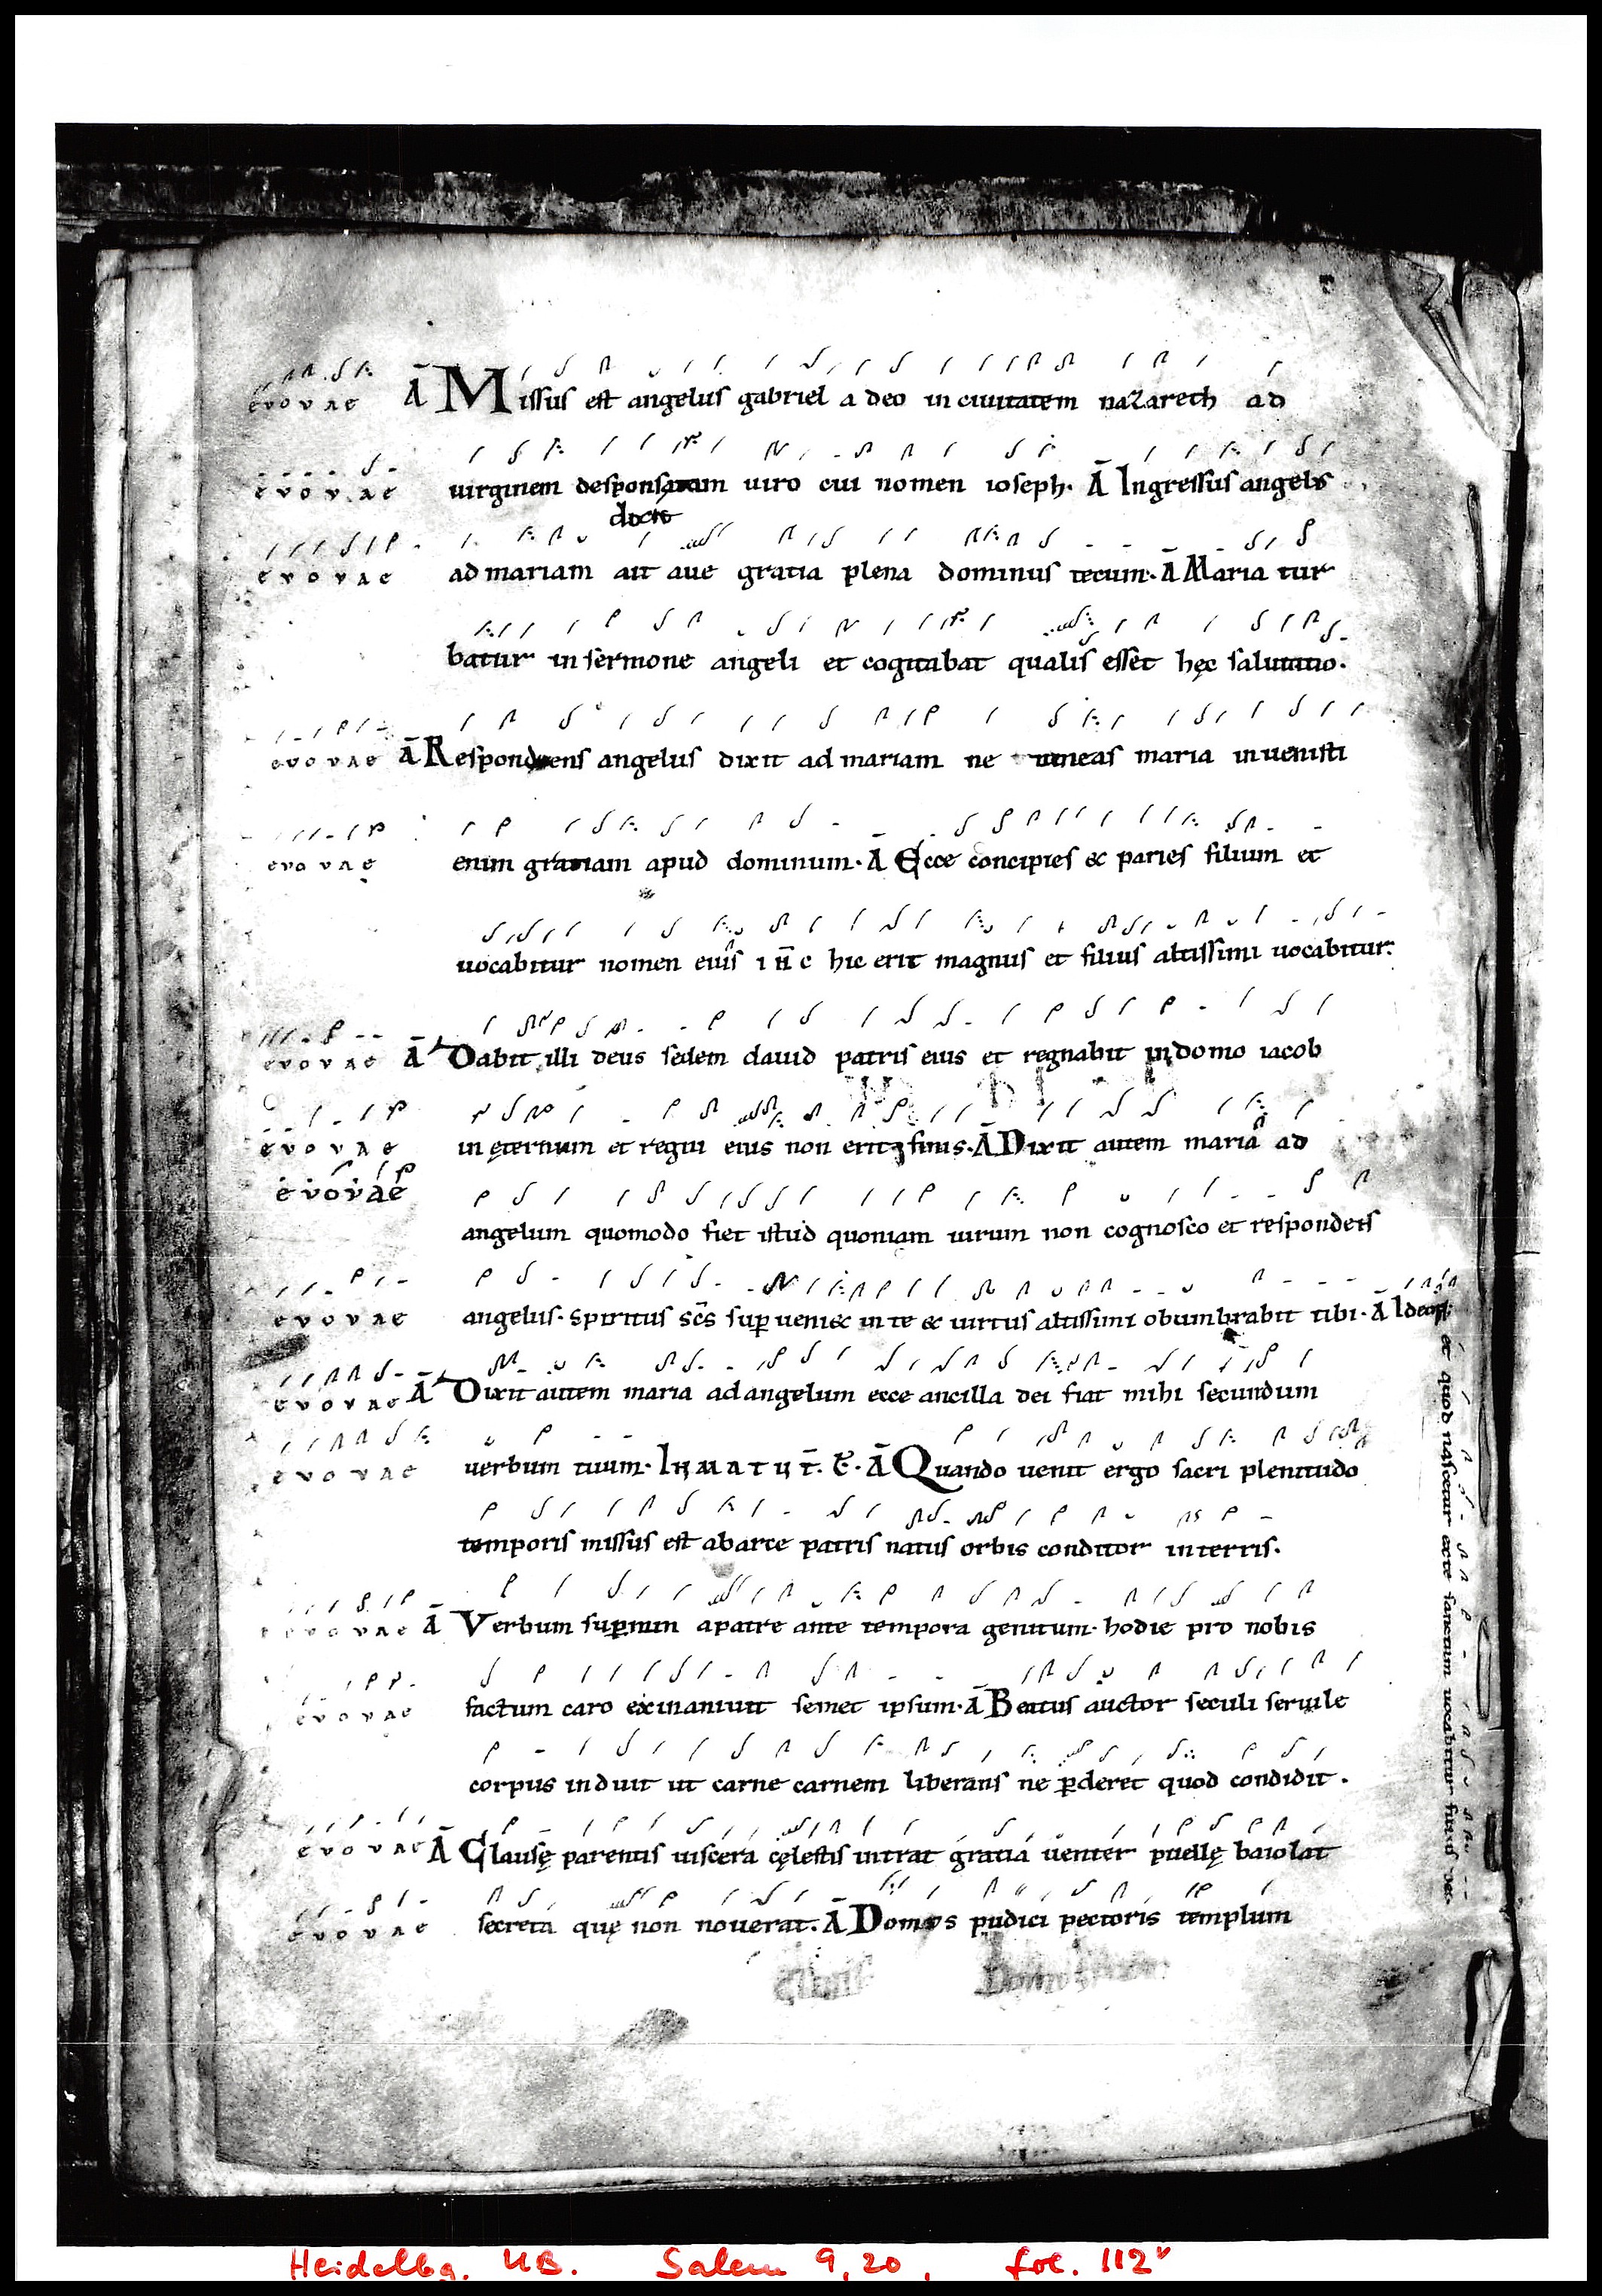 evovae Ā Missus est angelus gabriel a deo in ciuitatem nazareth ad
evovae uirginem desponsatam uiro cui nomen ioseph. Ā Ingressus angelus
evovae ad mariam ait aue gratia plena dominus tecum. Ā Maria tur
batur in sermone angeli et cogitabat qualis esset hęc salutatio.
evovae Ā Respondens angelus dixit ad mariam ne timeas maria inuenisti
evovae enim gratiam apud dominum. Ā Ecce concipies & paries filium et
uocabitur nomen eius ih̄c hic erit magnus et filius altissimi uocabitur.
evovae Ā Dabit illi deus sedem dauid patris eius et regnabit in domo iacob
evovae in ęternum et regni eius non erit finis. Ā Dixit autem maria ad
evovae angelum quomodo fiet istud quoniam uirum non cognosco et respondens
evovae angelus. spiritus sc̄s sup ueni& in te & uirtus altissimi obumbrabit tibi. Ā Ideoq;
et quod nascetur ex te sanctum uocabitur filius dei.
evovae Ā Dixit autem maria ad angelum ecce ancilla dei fiat mihi secundum
evovae uerbum tuum. IN MATUT̄. Ā Quando uenit ergo sacri plenitudo
temporis missus est ab arce patris natus orbis conditor in terris.
evovae Ā Verbum sup̄num a patre ante tempora genitum. hodie pro nobis
evovae factum caro exinaniuit semet ipsum. Ā Beatus auctor seculi seruile
corpus induit ut carne carnem liberans ne p̄deret quod condidit.
evovae Ā Clausę parentis uiscera cęlestis intrat gratia uenter puellę baiolat
evovae secreta quę non nouerat. Ā Domus pudici pectoris templum
Heidelbg. UB. Salem 9,20, fol. 112v